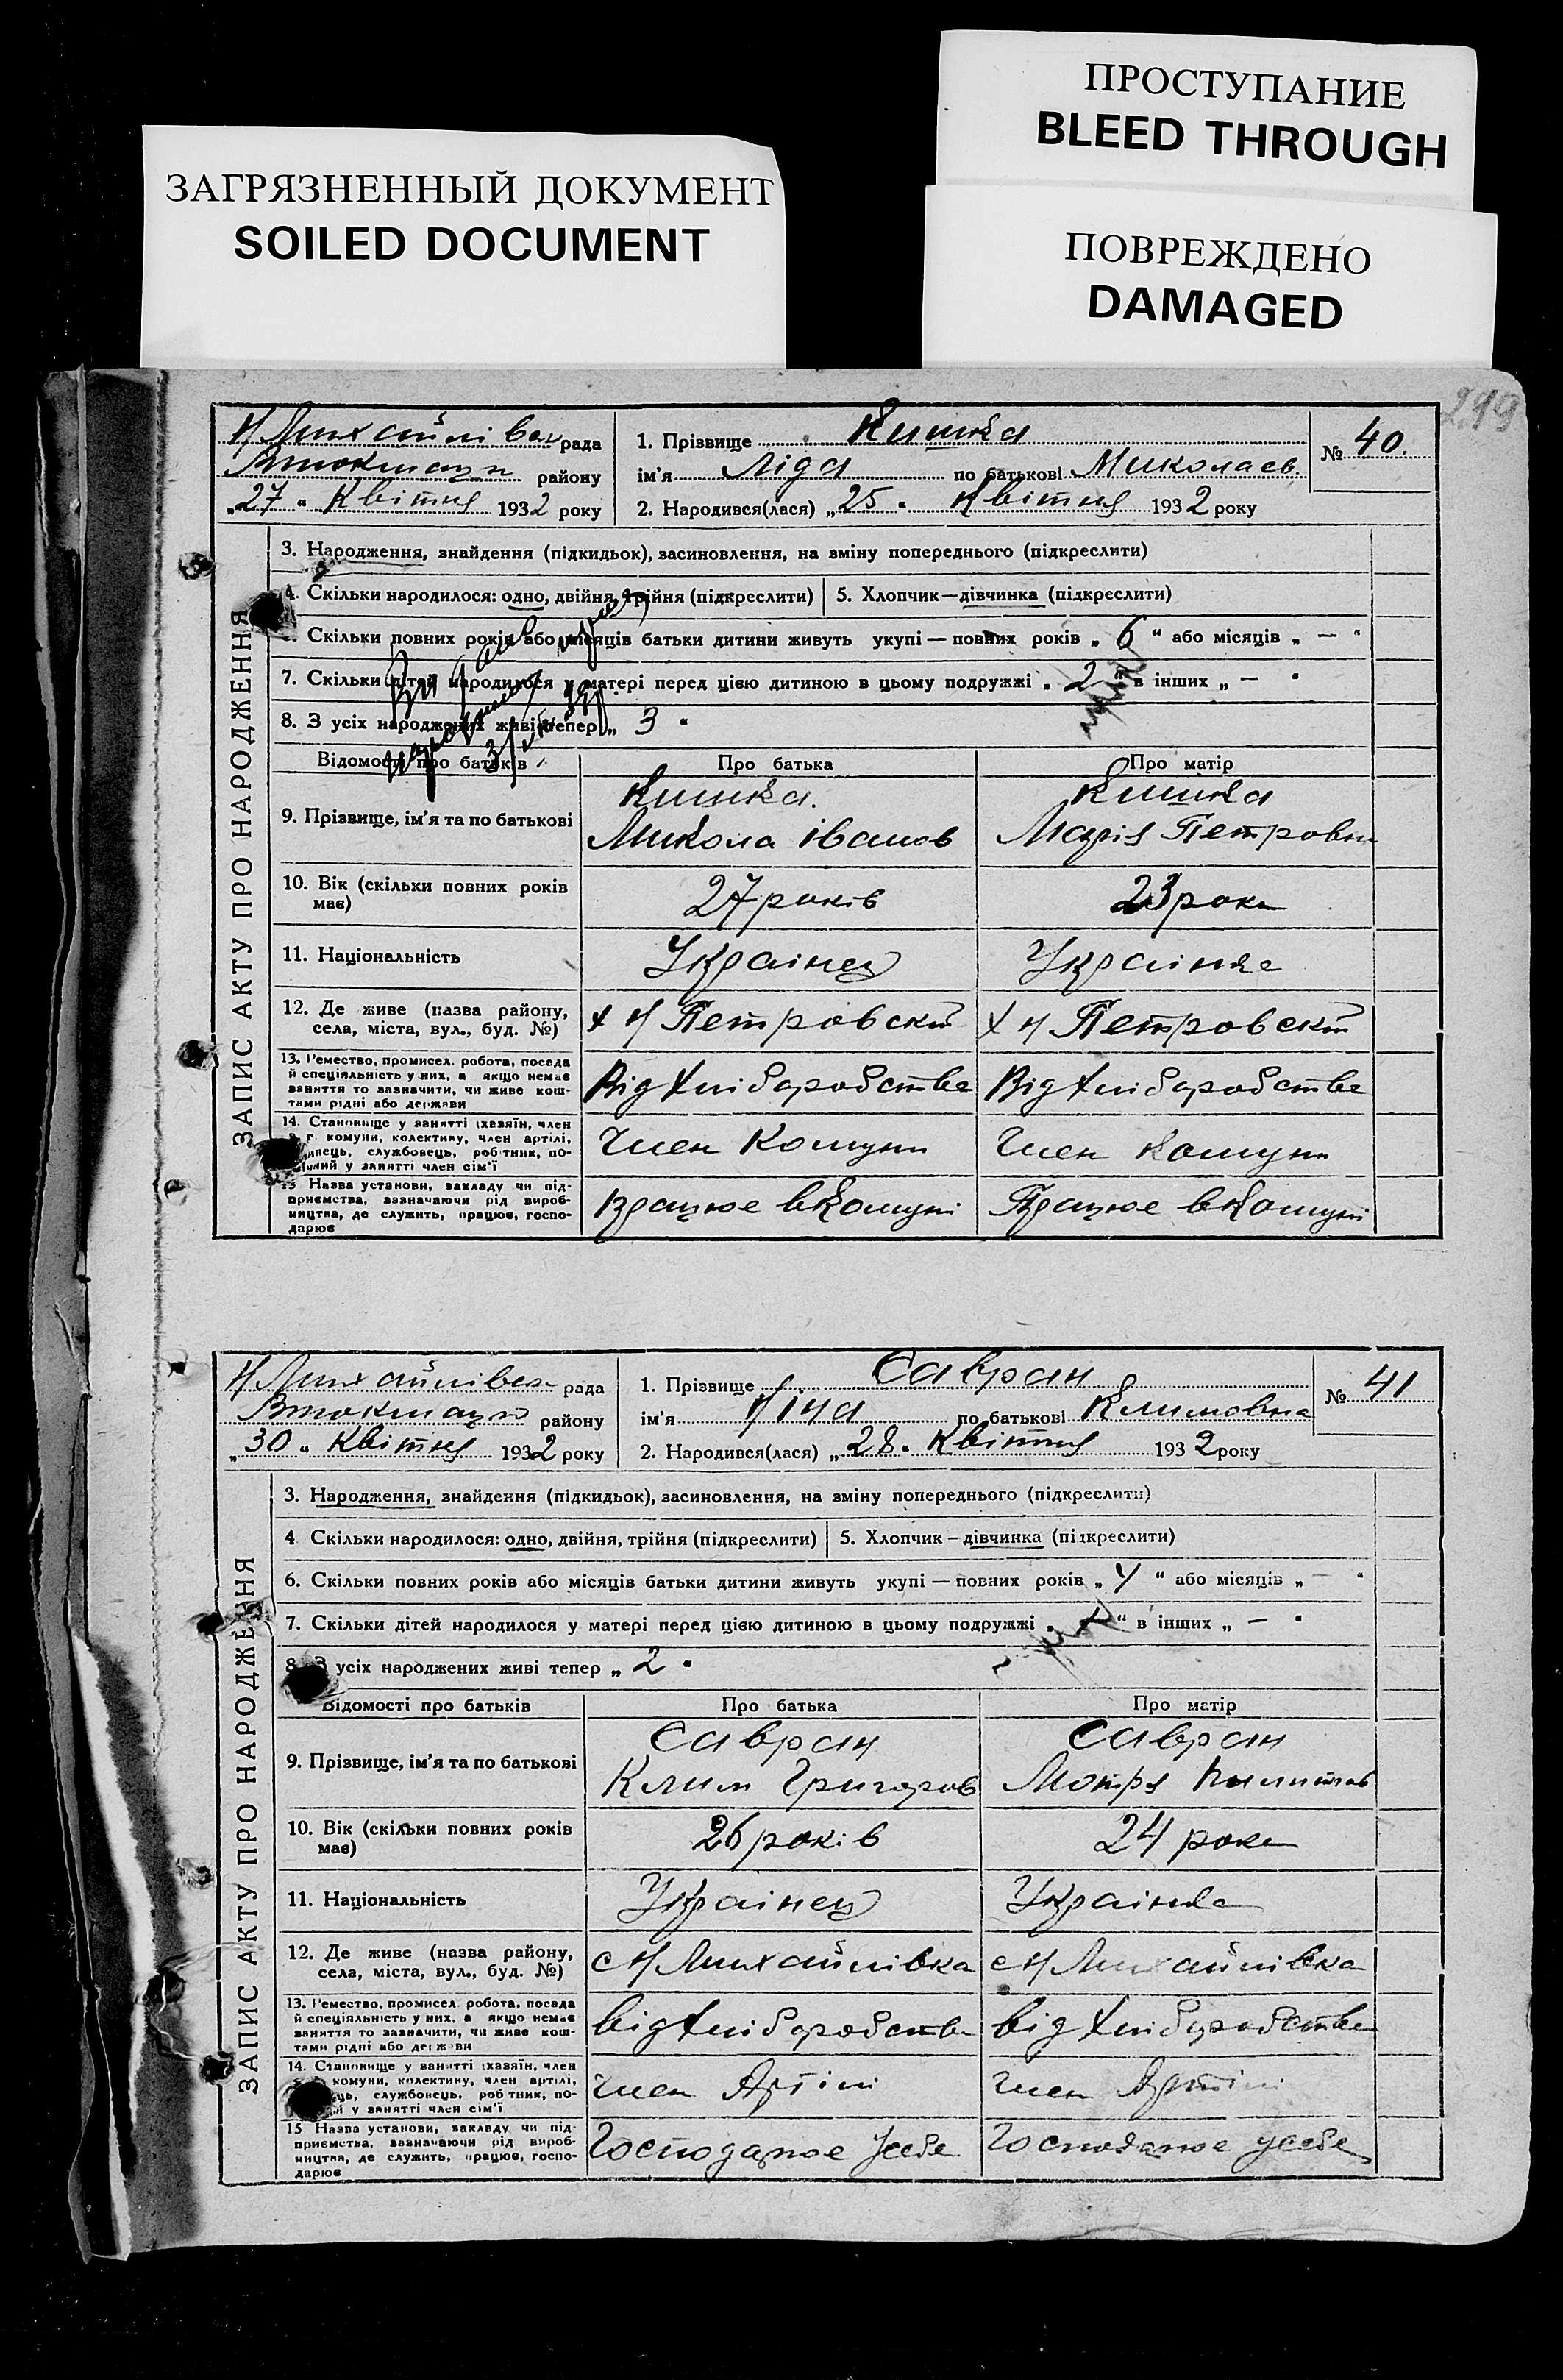 ПРОСТУПАНИЕ
BLEED THROUGH
ЗАГРЯЗНЕННЫЙ ДОКУМЕНТ
SOILED DOCUMENT
ПОВРЕЖДЕНО
DAMAGED
219
ЗАПИС АКТУ ПРО НАРОДЖЕННЯ
Н Михайлівск рада
району
„27" Квітня 1932 року
1. Прізвище Кишка
ім'я Ліда по батькові Миколаев.
2. Народився(лася) „25" Квітня 1932 року
№ 40.
3. Народження, знайдення (підкидьок), засиновлення, на зміну попереднього (підкреслити)
4. Скільки народилося: одно, двійня, трійня (підкреслити) 5. Хлопчик—дівчинка (підкреслити)
Скільки повних років або місяців батьки дитини живуть укупі — повних років „ 6 " або місяців „ — "
7. Скільки дітей народилося у матері перед цією дитиною в цьому подружжі „ 2 " в інших „ — "
8. З усіх народжених живі тепер „ 3 "
Відомості про батьків Про батька Про матір
9. Прізвище, ім'я та по батькові Кишка. Микола Іванов Кишка Марія Петровна
10. Вік (скільки повних років має) 27 років 23 роки
11. Національність Украінец Украінка
12. Де живе (назва району, села, міста, вул., буд. №) х Н Петровский х Н Петровский
13. Ремество, промисел, робота, посада й спеціяльність у них, а якщо немає заняття то зазначити, чи живе коштами рідні або держави Від Хліборобства Від Хліборобства
14. Становище у занятті (хазяїн, член комуни, колективу, член артілі, службовець, робітник, у занятті член сім'ї Член Комуни Член Комуни
15 Назва установи, закладу чи підприємства, зазначаючи рід виробництва, де служить, працює, господарює Працює в Комуні Працює в Комуні
ЗАПИС АКТУ ПРО НАРОДЖЕННЯ
Н Михайлівск рада
району
„30" Квітня 1932 року
1. Прізвище Савран
ім'я Ніна по батькові Климовна
2. Народився(лася) „28" Квітня 1932 року
№ 41
3. Народження, знайдення (підкидьок), засиновлення, на зміну попереднього (підкреслити)
4 Скільки народилося: одно, двійня, трійня (підкреслити) 5. Хлопчик—дівчинка (підкреслити)
6. Скільки повних років або місяців батьки дитини живуть укупі — повних років „ " або місяців „ — "
7. Скільки дітей народилося у матері перед цією дитиною в цьому подружжі „ " в інших „ — "
8. З усіх народжених живі тепер „ 2 "
Відомості про батьків Про батька Про матір
9. Прізвище, ім'я та по батькові Савран Клим Григоров Савран Мотря
10. Вік (скільки повних років має) 26 років 24 роки
11. Національність Украінец Украінка
12. Де живе (назва району, села, міста, вул., буд. №) с Н Михайлівка с Н Михайлівка
13. Ремество, промисел, робота, посада й спеціяльність у них, а якщо немає заняття то зазначити, чи живе коштами рідні або держави від Хліборобства від Хліборобства
14. Становище у занятті (хазяїн, член комуни, колективу, член артілі, службовець, робітник, у занятті член сім'ї член Артілі член Артілі
15 Назва установи, закладу чи підприємства, зазначаючи рід виробництва, де служить, працює, господарює Господарює усебе Господарює усебе